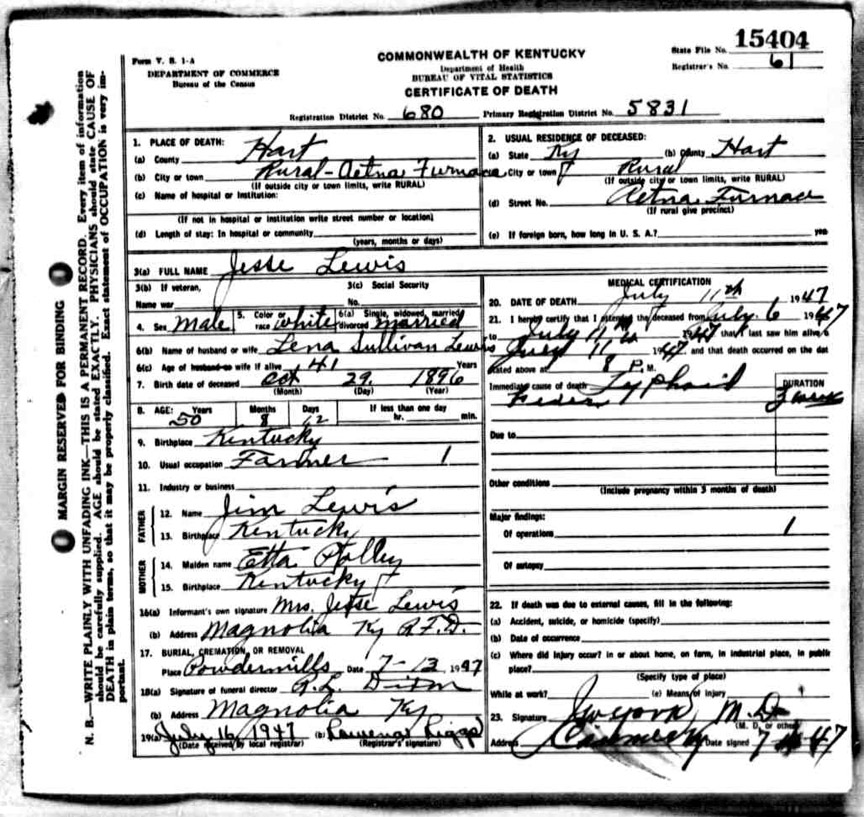 15404
State File No.
Form V. S. 1-A
COMMONWEALTH OF KENTUCKY
Registrar's No. 61
DEPARTMENT OF COMMERCE
Department of Health
Bureau of the Census
BUREAU OF VITAL STATISTICS
CERTIFICATE OF DEATH
Registration District No. 680 Primary Registration District No. 5831
1. PLACE OF DEATH:
(a) County Hart
(b) City or town Rural-Aetna Furnace
(If outside city or town limits, write RURAL)
(c) Name of hospital or institution:
(If not in hospital or institution write street number or location)
(d) Length of stay: In hospital or community
(years, months or days)
2. USUAL RESIDENCE OF DECEASED:
(a) State Ky (b) County Hart
City or town Rural
(If outside city or town limits, write RURAL)
(d) Street No. Aetna Furnace
(If rural give precinct)
(e) If foreign born, how long in U. S. A.? yes
3(a) FULL NAME Jesse Lewis
3(b) If veteran, 3(c) Social Security
Name war No.
4. Sex Male 5. Color or race white 6(a) Single, widowed, married, divorced married
6(b) Name of husband or wife Lena Sullivan Lewis
6(c) Age of husband or wife if alive 41 Years
7. Birth date of deceased Oct 29. 1896
(Month) (Day) (Year)
8. AGE: Years Months Days If less than one day
50 8 12 hr. min.
9. Birthplace Kentucky
10. Usual occupation Farmer 1
11. Industry or business
FATHER
12. Name Jim Lewis
13. Birthplace Kentucky
MOTHER
14. Maiden name Etta
15. Birthplace Kentucky
16(a) Informant's own signature Mrs. Jesse Lewis
(b) Address Magnolia Ky R.F.D.
17. BURIAL, CREMATION, OR REMOVAL
Place Powdermills Date 7-13 1947
18(a) Signature of funeral director R.L. Dixon
(b) Address Magnolia Ky
19(a) July 16, 1947 (b) Riggs
(Date received by local registrar) (Registrar's signature)
MEDICAL CERTIFICATION
20. DATE OF DEATH July 11th 1947
21. I hereby certify that I attended the deceased from July 6 1947
to July 11 1947 that I last saw him alive
July 11 1947 and that death occurred on the dat
stated above at 8 P. M.
Immediate cause of death Typhoid
Fever
DURATION
3 weeks
Due to
Other conditions
(Include pregnancy within 3 months of death)
Major findings:
Of operations 1
Of autopsy
22. If death was due to external causes, fill in the following:
(a) Accident, suicide, or homicide (specify)
(b) Date of occurrence
(c) Where did injury occur? in or about home, on farm, in industrial place, in public
place?
(Specify type of place)
While at work? (e) Means of injury
23. Signature M.D.
(M. D. or other)
Address Date signed 7 47
MARGIN RESERVED FOR BINDING
N. B.—WRITE PLAINLY WITH UNFADING INK—THIS IS A PERMANENT RECORD. Every item of information
should be carefully supplied. AGE should be stated EXACTLY. PHYSICIANS should state CAUSE OF
DEATH in plain terms, so that it may be properly classified. Exact statement of OCCUPATION is very im-
portant.